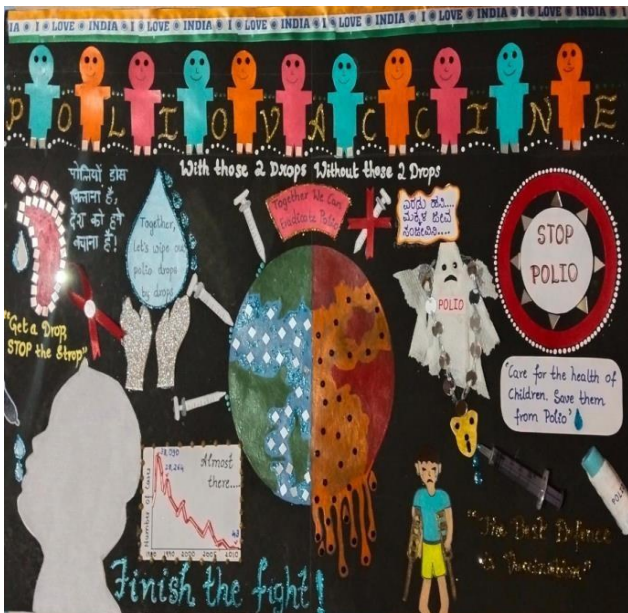 IA I LOVE INDIA I LOVE INDIA I LOVE INDIA I LOVE INDIA I LOVE INDIA I
POLIOVACCINE
With those 2 Drops Without those 2 Drops
पोलियों डोस
पिलाना है,
देश को हमें
बचाना है!
Together,
let's wipe out
polio drops
by drops
Together We Can
Eradicate Polio
ಎರಡು ಹನಿ....
ಮಕ್ಕಳ ಜೀವ
ಸಂಜೀವಿನಿ....
STOP
POLIO
POLIO
"Get a Drop,
STOP the Strop"
"Care for the health of
Children. Save them
from Polio"
Number of Cases
Almost
there....
1990 1995 2000 2005 2010
Finish the fight!
"The Best Defence
is Vaccination"